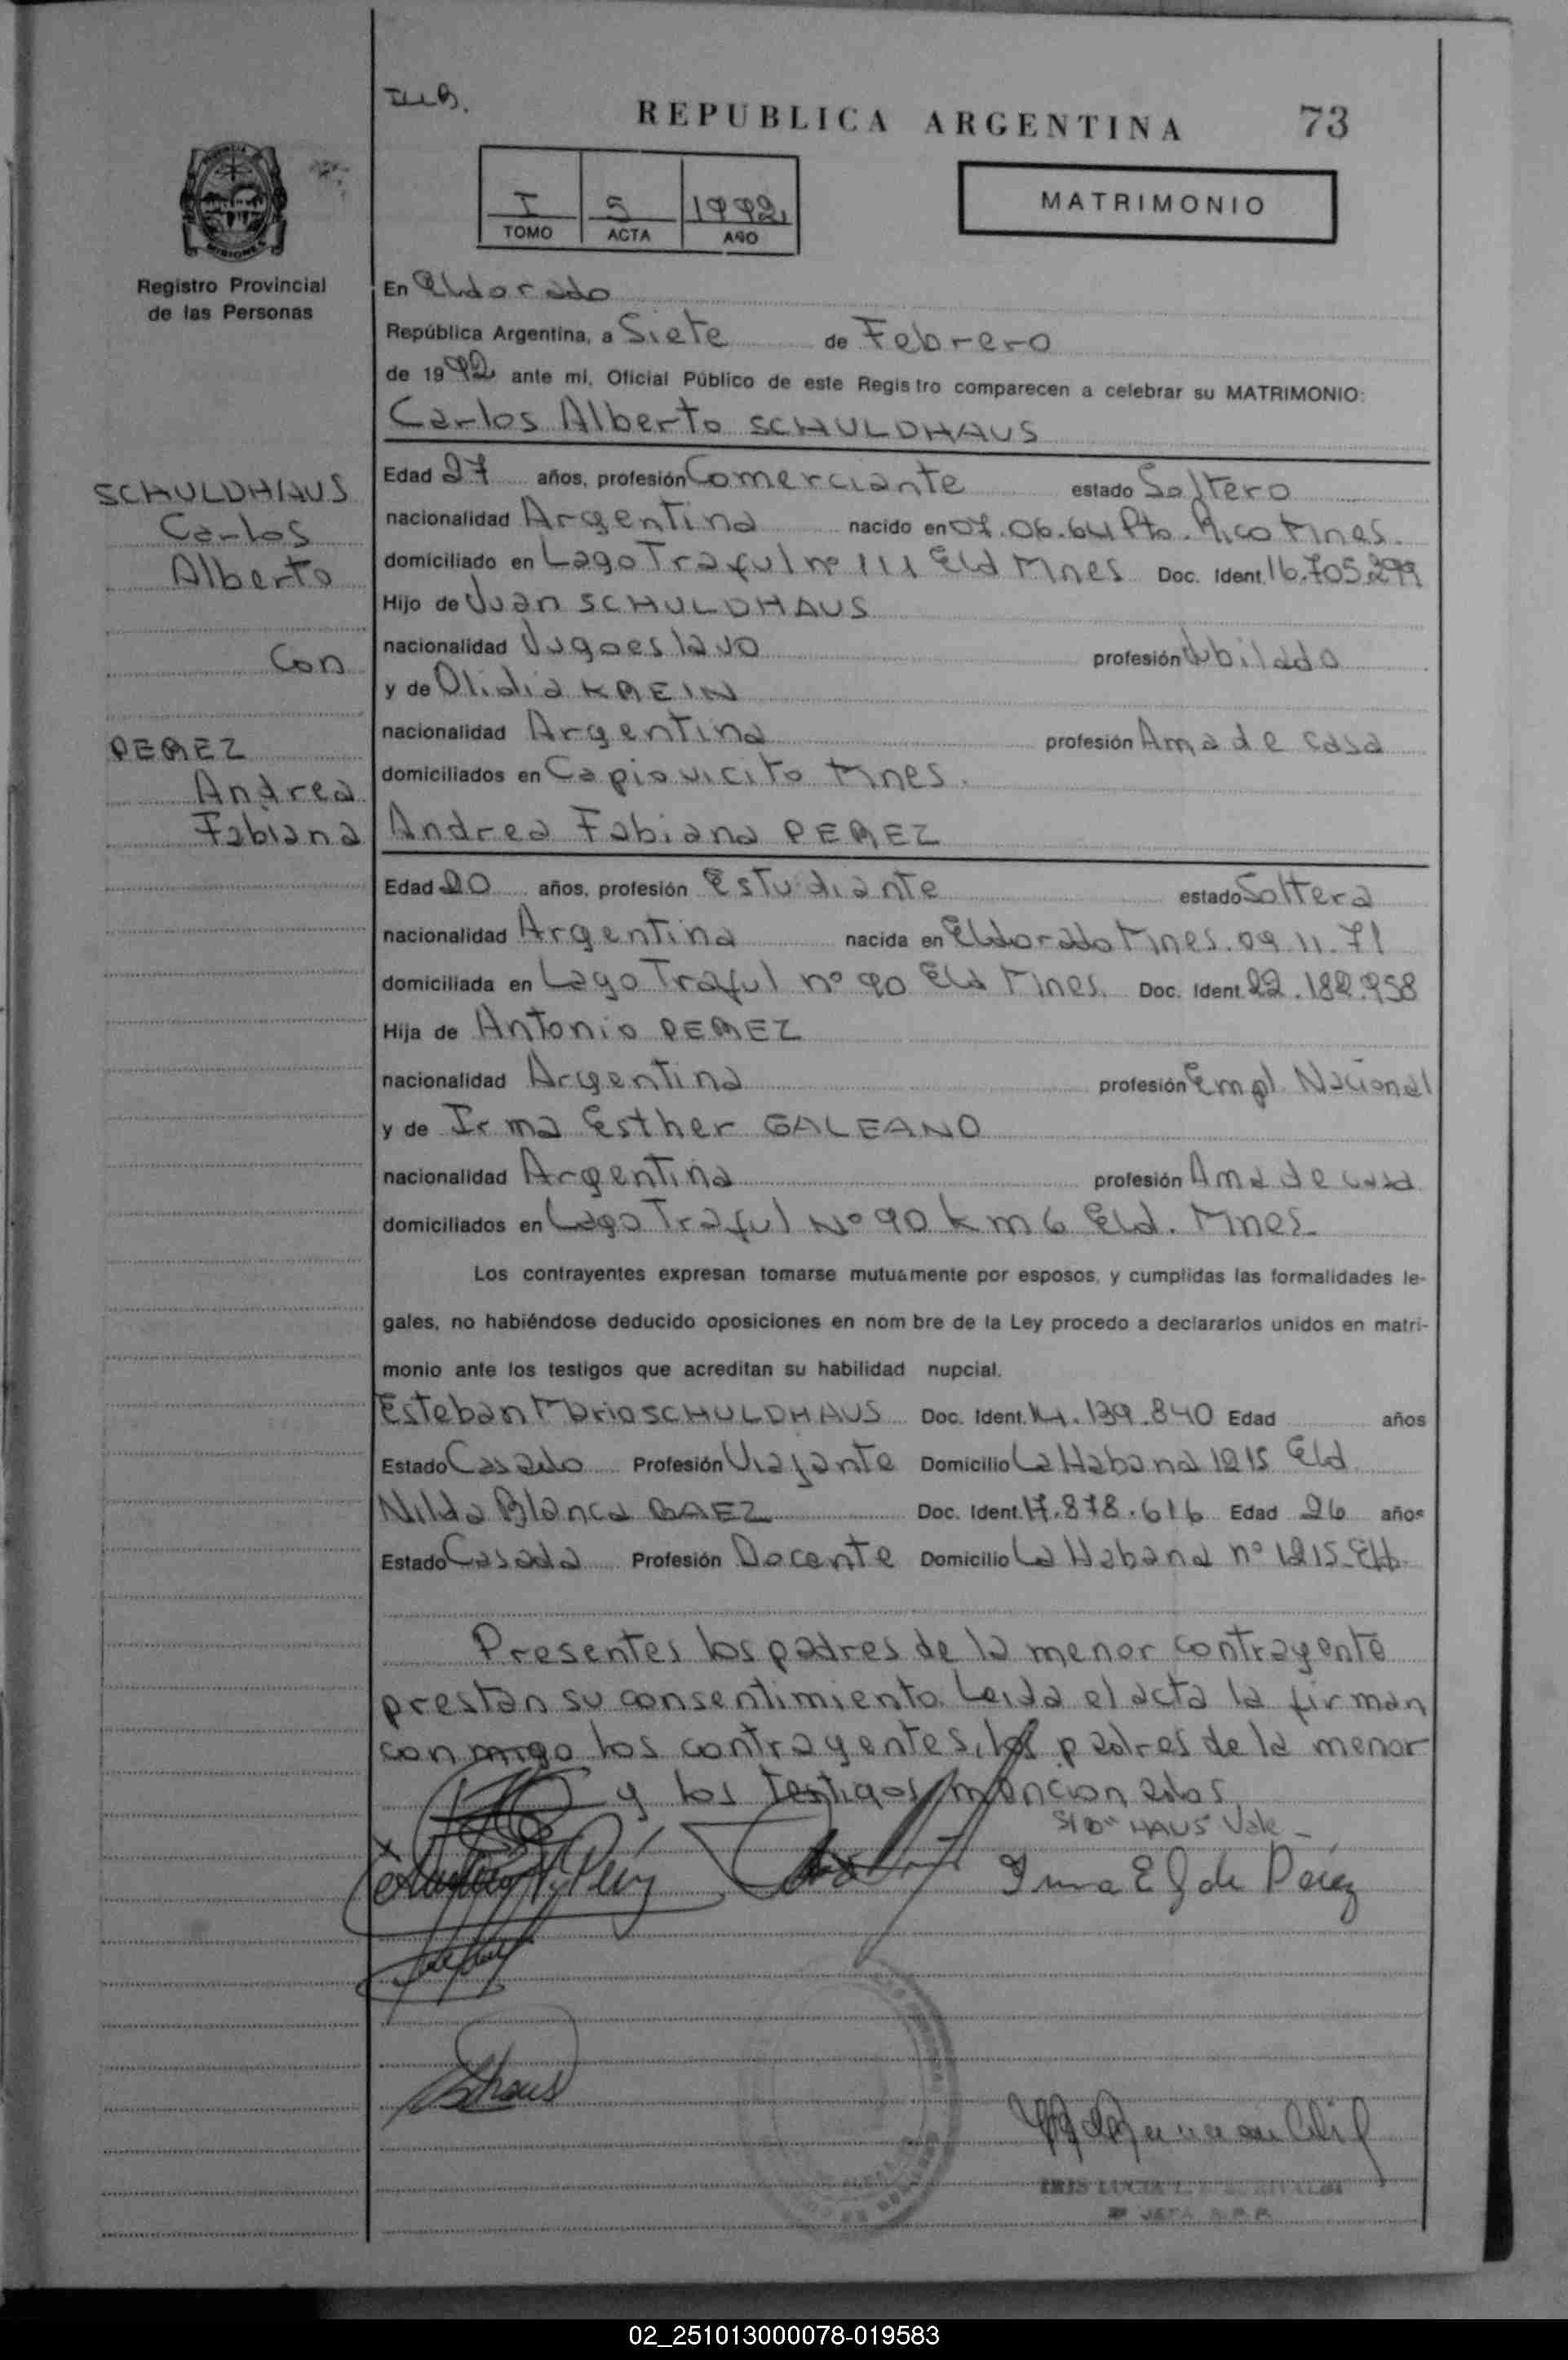 REPUBLICA ARGENTINA 73
I 5 1992
TOMO ACTA AÑO
MATRIMONIO
MISIONES
Registro Provincial
de las Personas
En Eldorado
República Argentina, a Siete de Febrero
de 1992 ante mi, Oficial Público de este Registro comparecen a celebrar su MATRIMONIO:
Carlos Alberto SCHULDHAUS
SCHULDHAUS
Carlos
Alberto
Con
PEREZ
Andrea
Fabiana
Edad 27 años, profesión Comerciante estado Soltero
nacionalidad Argentina nacido en 07.06.64 Pto. Rico Mnes.
domiciliado en Lago Traful nº 111 Eld Mnes Doc. Ident. 16.705.299
Hijo de Juan SCHULDHAUS
nacionalidad Jugoeslavo profesión Jubilado
y de Olidia KREIN
nacionalidad Argentina profesión Ama de casa
domiciliados en Capiovicito Mnes.
Andrea Fabiana PEREZ
Edad 20 años, profesión Estudiante estado Soltera
nacionalidad Argentina nacida en Eldorado Mnes. 09.11.71
domiciliada en Lago Traful nº 90 Eld Mnes. Doc. Ident. 22.182.958
Hija de Antonio PEREZ
nacionalidad Argentina profesión Empl. Nacional
y de Irma Esther GALEANO
nacionalidad Argentina profesión Ama de casa
domiciliados en Lago Traful Nº 90 km 6 Eld. Mnes.
Los contrayentes expresan tomarse mutuamente por esposos, y cumplidas las formalidades le-
gales, no habiéndose deducido oposiciones en nom bre de la Ley procedo a declararlos unidos en matri-
monio ante los testigos que acreditan su habilidad nupcial.
Esteban Mario SCHULDHAUS Doc. Ident. 14.139.840 Edad años
Estado Casado Profesión Viajante Domicilio La Habana 1215 Eld.
Nilda Blanca BAEZ Doc. Ident. 17.878.616 Edad 26 años
Estado Casada Profesión Docente Domicilio La Habana nº 1215-Eld.
Presentes los padres de la menor contrayente
prestan su consentimiento. Leida el acta la firman
conmigo los contrayentes, los padres de la menor
y los testigos mencionados
HAUS Vale -
Irma E G de Pérez
IRIS LUCIA
JEFA R.P.P.
02_251013000078-019583